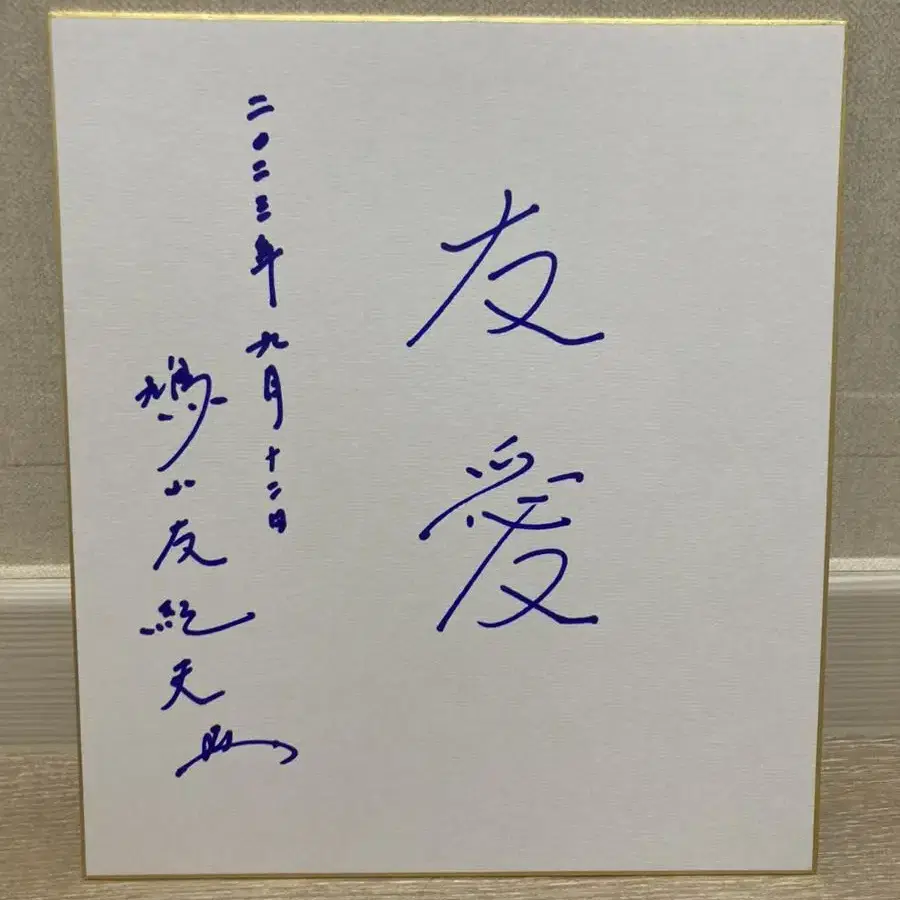 友愛
二〇二三年九月十二日
鳩山友紀夫